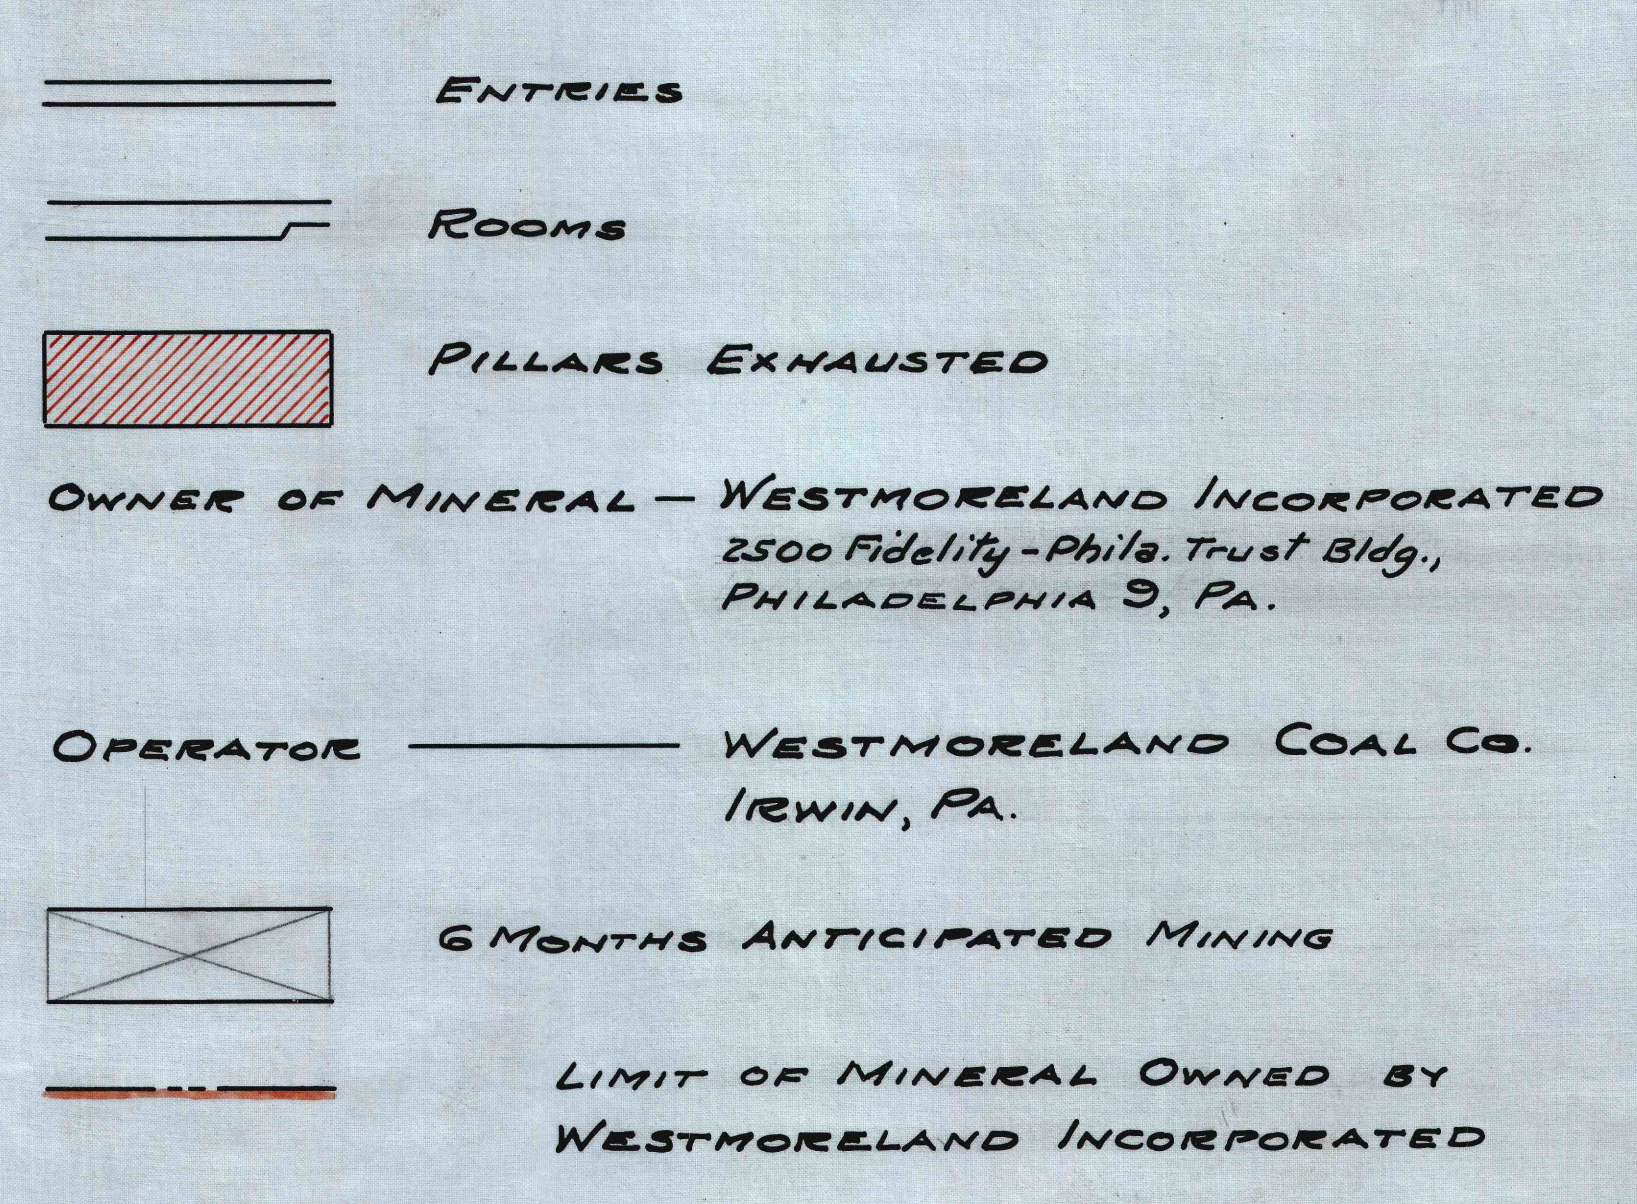 ENTRIES
ROOMS
PILLARS EXHAUSTED
OWNER OF MINERAL — WESTMORELAND INCORPORATED
2500 Fidelity-Phila. Trust Bldg.,
PHILADELPHIA 9, PA.
OPERATOR — WESTMORELAND COAL CO.
IRWIN, PA.
6 MONTHS ANTICIPATED MINING
LIMIT OF MINERAL OWNED BY
WESTMORELAND INCORPORATED